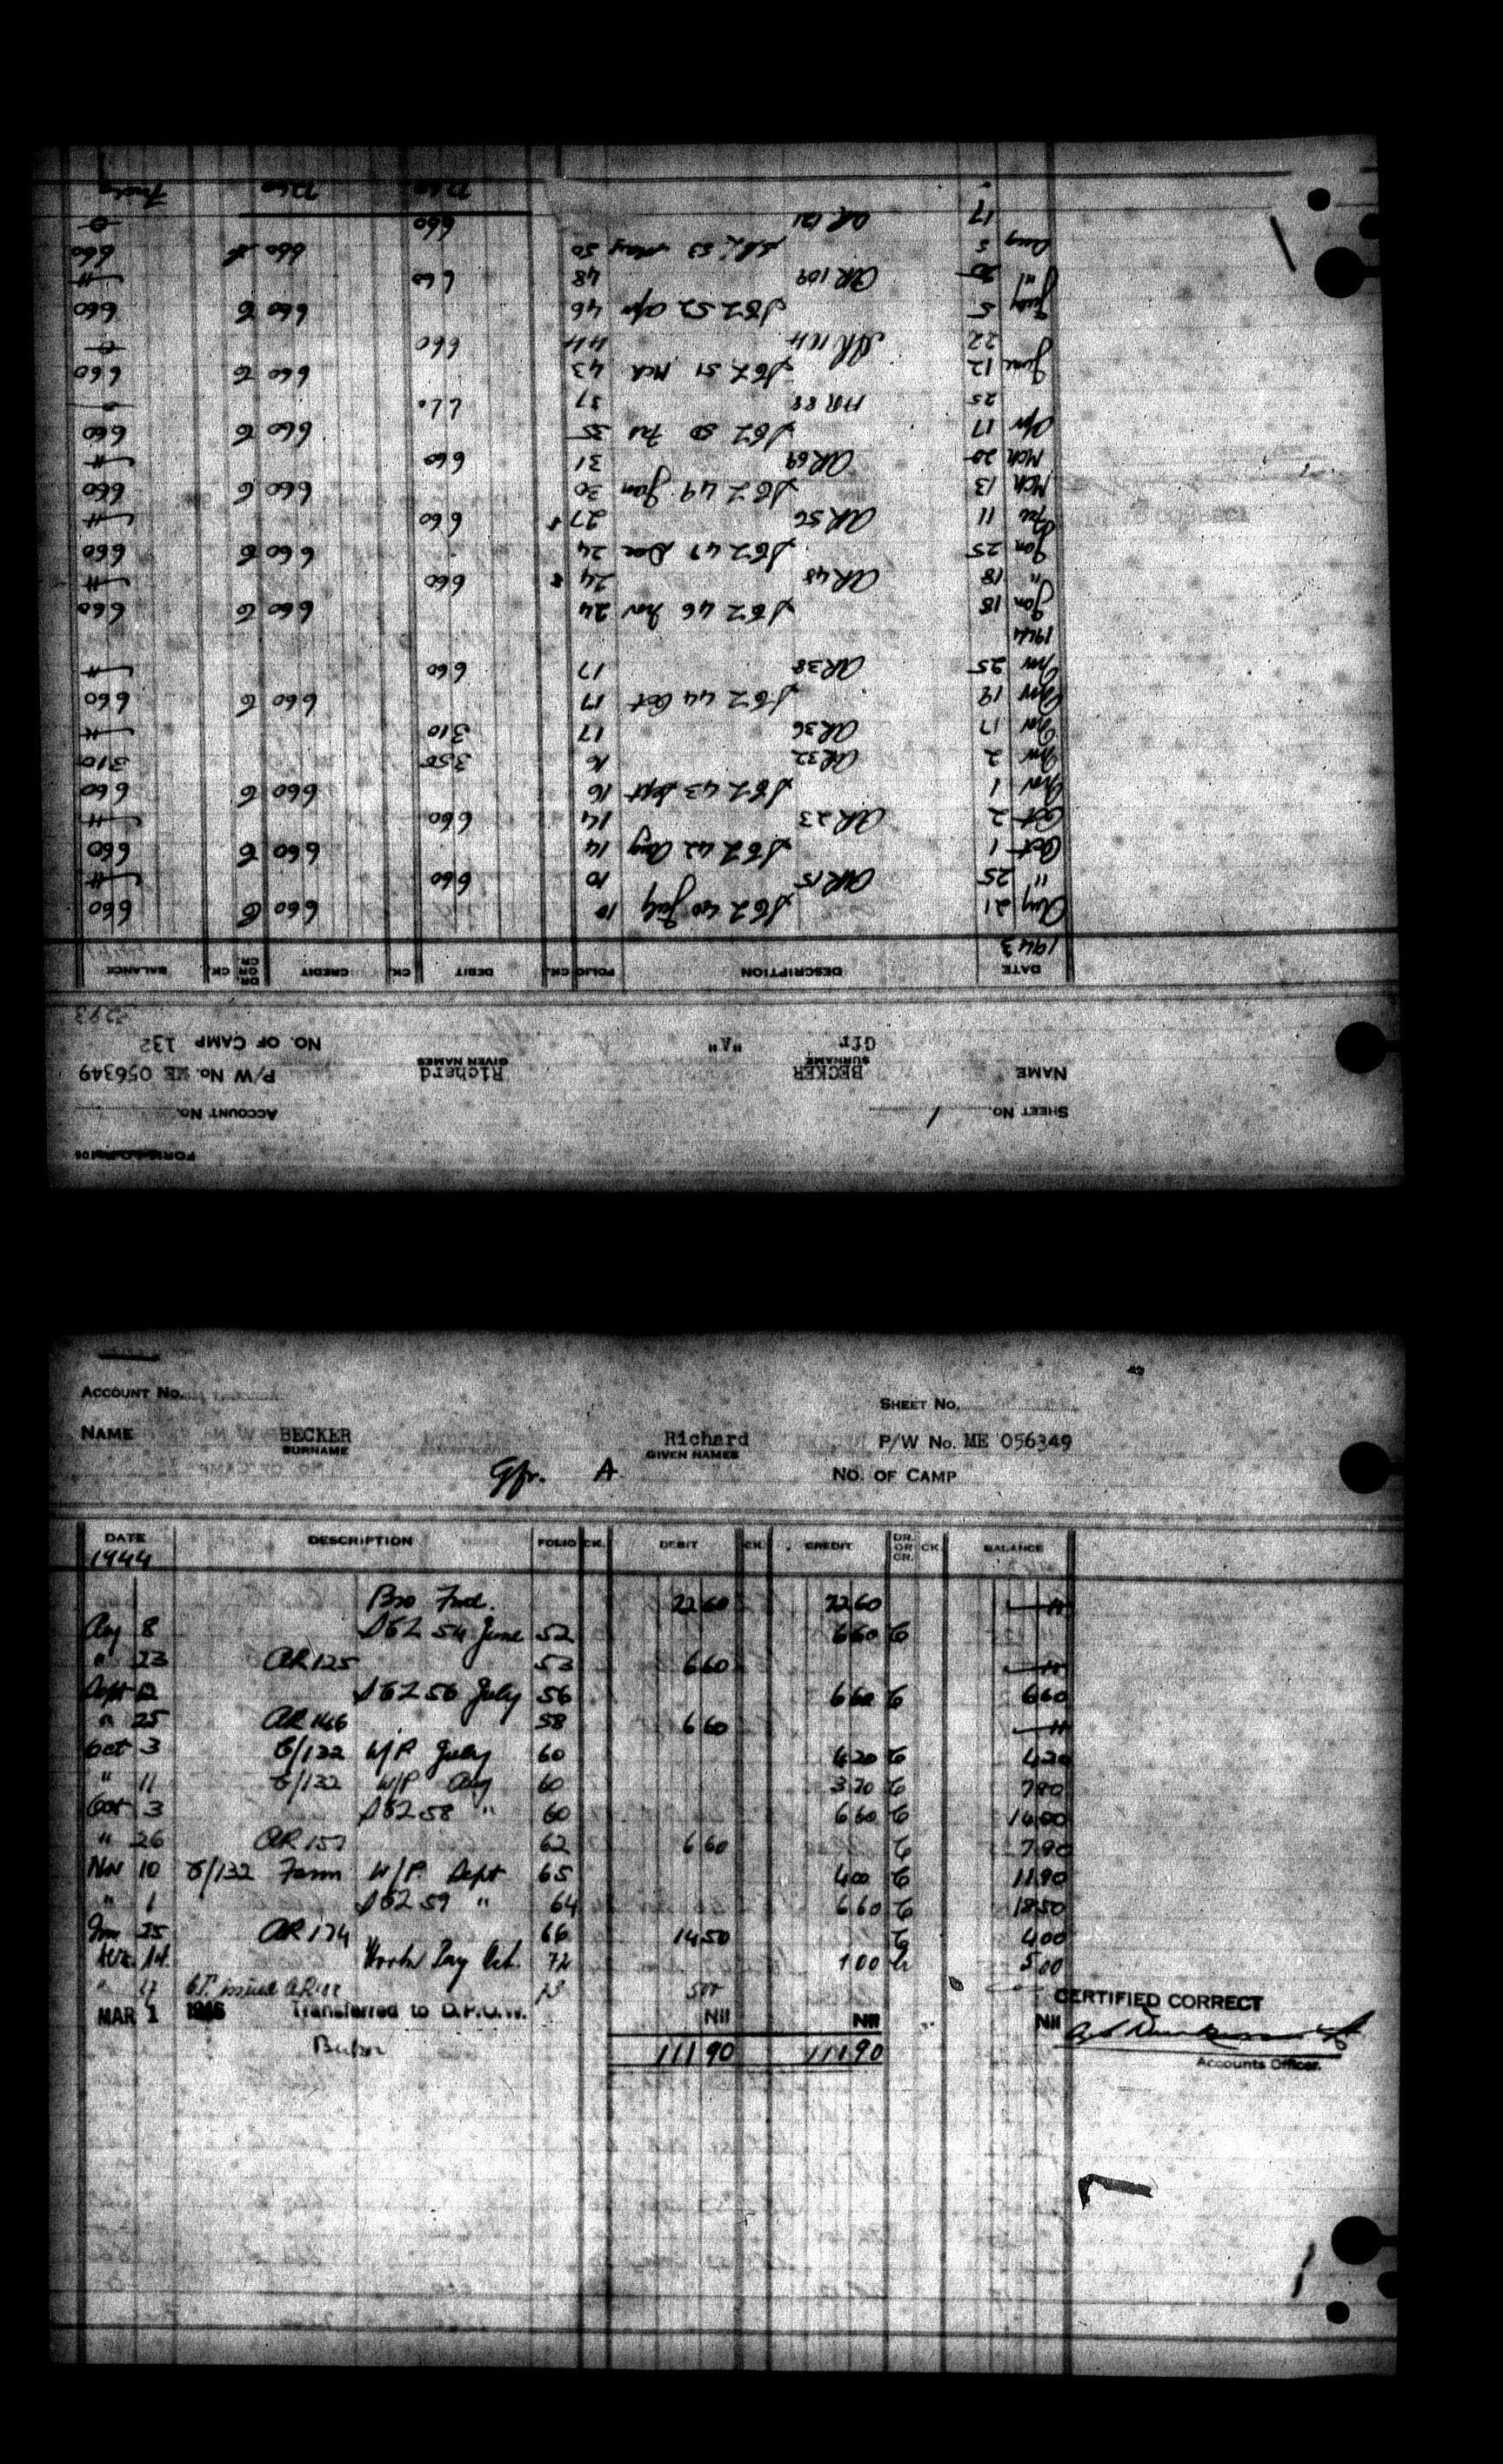 FORM
ACCOUNT No.
SHEET No. 1
NAME BECKER Richard P/W No. ME 056349
SURNAME GIVEN NAMES
Gfr "A" NO. OF CAMP 132
3293
DATE DESCRIPTION FOLIO CK. DEBIT CK. CREDIT DR. OR CR. CK. BALANCE
1943
Aug 21 40 July 10 660 660
" 25 AR 15 10 660
Oct 1 42 Aug 14 660 660
Oct 2 AR 23 14 660
Nov 1 43 Sept 16 660 660
Nov 2 AR 32 16 350 310
Nov 17 AR 36 17 310
Nov 19 44 Oct 17 660 660
Nov 25 AR 38 17 660
1944
Jan 18 46 Nov 24 660 660
" 18 AR 48 24 660
Jan 25 47 Dec 24 660 660
Feb 11 AR 56 27 660
Mch 13 49 Jan 30 660 660
Mch 20 AR 69 31 660
Apr 17 50 35 660 660
25 AR 88 37
June 12 51 Mch 43 660 660
22 AR 104 44 660
July 5 52 Apr 46 660 660
AR 109 48 660
Aug 5 53 May 50 660 660
17 AR 121 660
7260 7260
ACCOUNT No.
SHEET No.
NAME BECKER Richard P/W No. ME 056349
SURNAME GIVEN NAMES
Gfr. A NO. OF CAMP
DATE DESCRIPTION FOLIO CK. DEBIT CK. CREDIT DR. OR CR. CK. BALANCE
1944
Bro Fwd. 7260 7260
Aug 8 54 June 52 660
" 23 AR 125 53 660
Sept 12 56 July 56 660 660
" 25 AR 146 58 660
Oct 3 /132 W/P July 60 420 420
" 11 /132 W/P Aug 60 370 790
Oct 3 58 " 60 660 1450
" 26 AR 157 62 660 790
Nov 10 /132 Farm W/P. Sept 65 400 1190
" 1 59 " 64 660 1850
Nov 25 AR 174 66 1450 400
Work Pay Oct. 72 100 500
issued 500
MAR 1 1946 Transferred to D.P.O.W. Nil Nil Nil
11190 11190
CERTIFIED CORRECT
Accounts Officer.